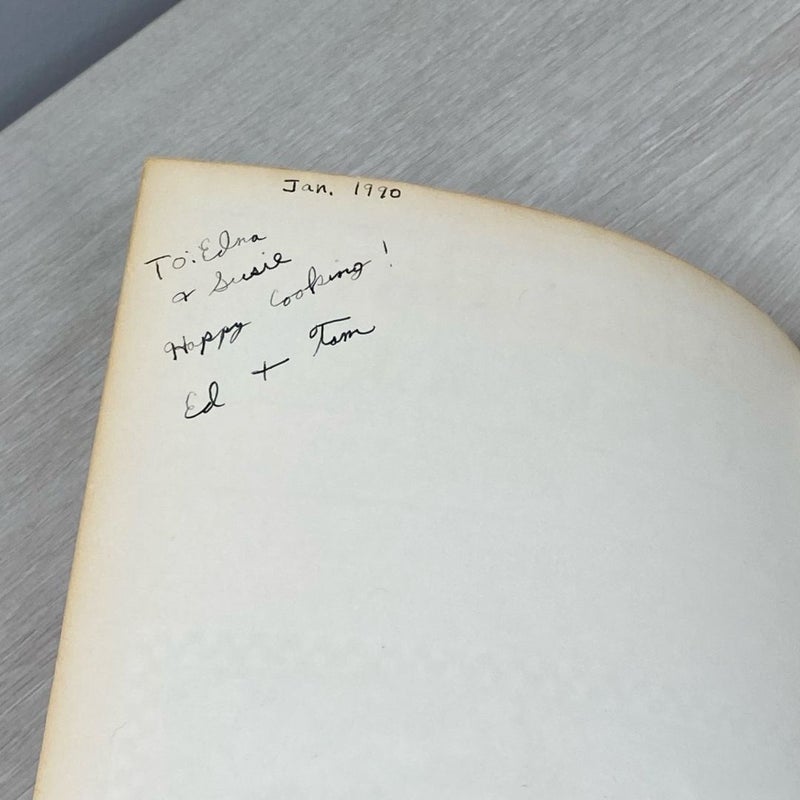 Jan. 1990
To: Edna
& Susie
Happy Cooking!
Ed + Tom